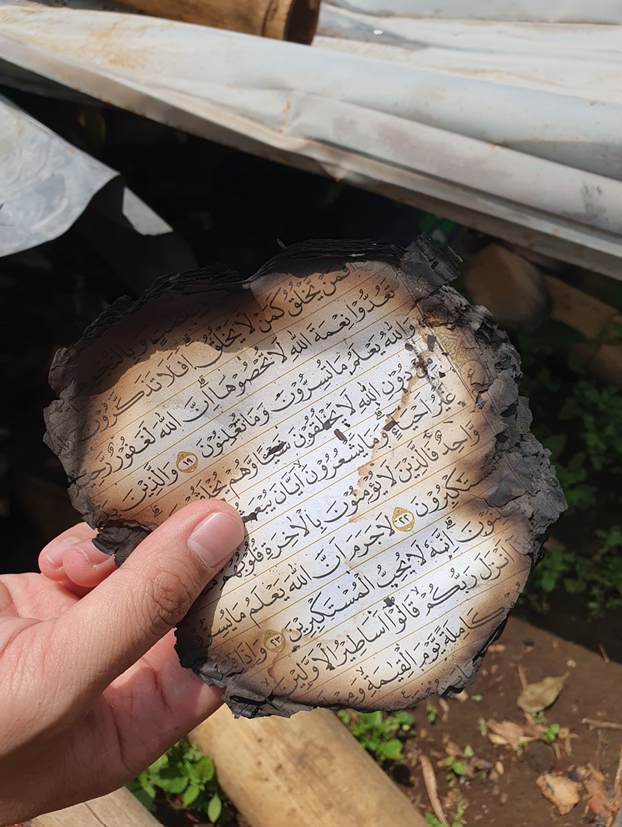 فَمَنْ يَخْلُقُ كَمَنْ لَا يَخْلُقُ اَفَلَا تَذَكَّرُوْنَ
تَعُدُّوْا نِعْمَةَ اللّٰهِ لَا تُحْصُوْهَا اِنَّ اللّٰهَ لَغَفُوْرٌ
وَاللّٰهُ يَعْلَمُ مَا تُسِرُّوْنَ وَمَا تُعْلِنُوْنَ ١٩ وَالَّذِيْنَ
اللّٰهِ لَا يَخْلُقُوْنَ شَيْـًٔا وَّهُمْ
غَيْرُ اَحْيَاۤءٍ وَمَا يَشْعُرُوْنَ اَيَّانَ
وَّاحِدٌ فَالَّذِيْنَ لَا يُؤْمِنُوْنَ بِالْاٰخِرَةِ
تَكْبِرُوْنَ ٢٢ لَا جَرَمَ اَنَّ اللّٰهَ يَعْلَمُ مَا
اِنَّهٗ لَا يُحِبُّ الْمُسْتَكْبِرِيْنَ ٢٣ وَاِذَا
رَبُّكُمْ قَالُوْٓا اَسَاطِيْرُ الْاَوَّلِيْنَ
كَامِلَةً يَّوْمَ الْقِيٰمَةِ